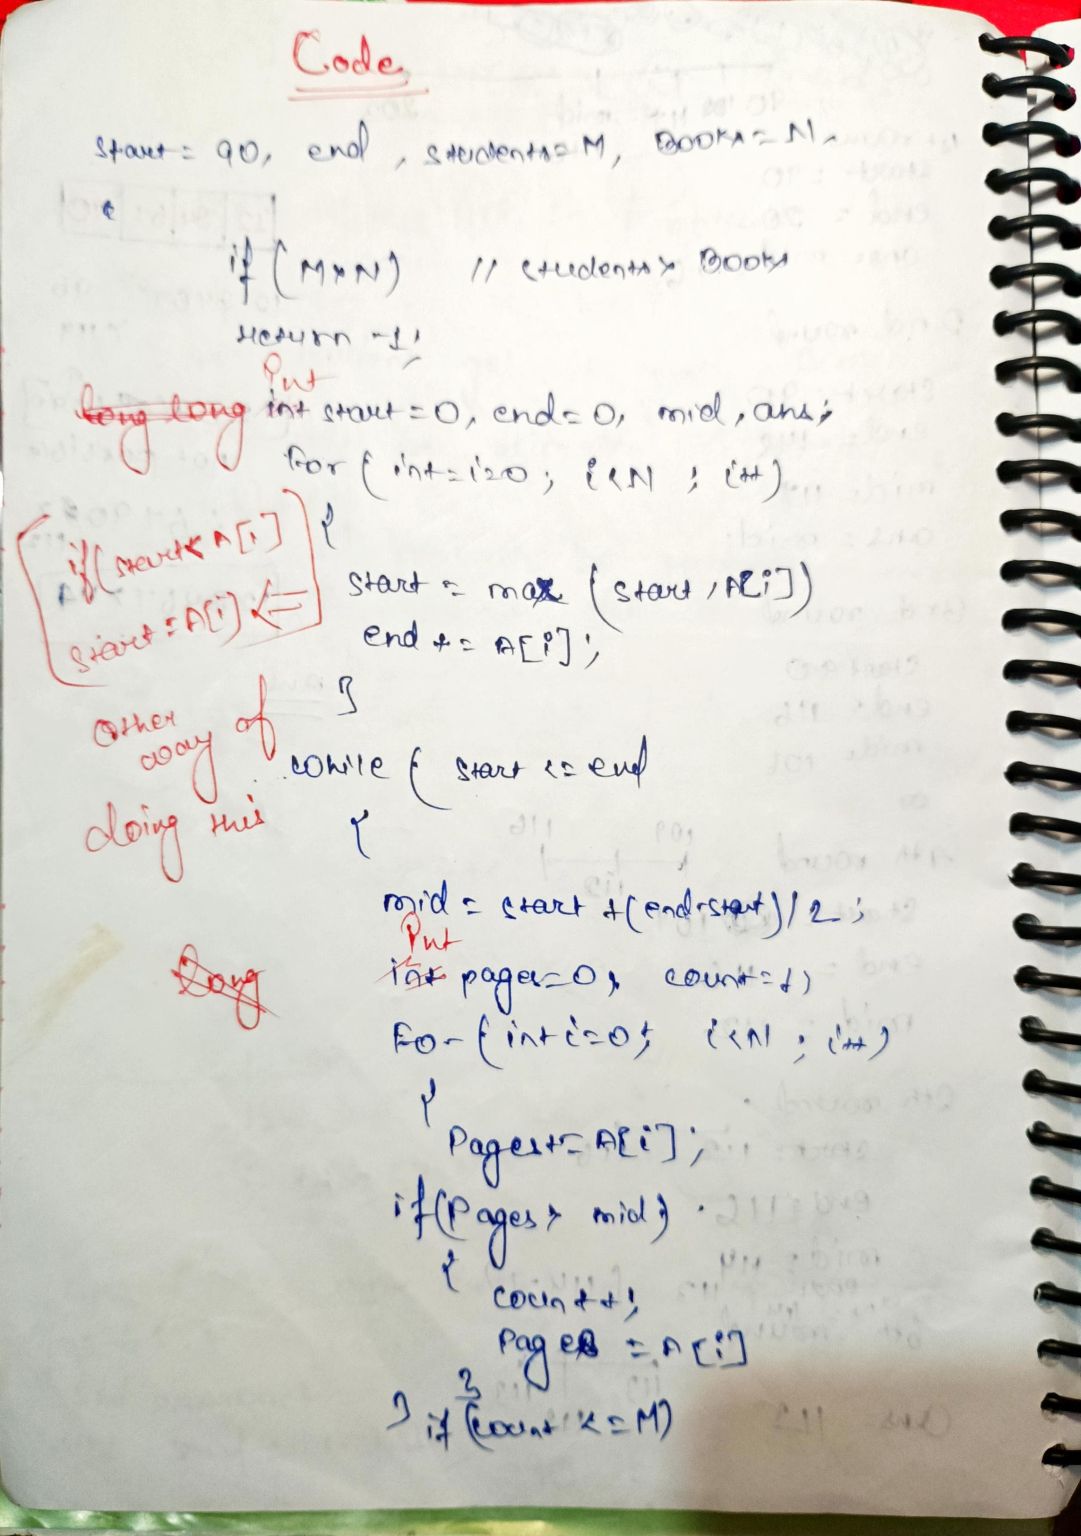 Code
start = 90, end, students = M, Books = N,
if (M > N) // students > Books
return -1;
long long int start = 0, end = 0, mid, ans;
Put
for ( int = i = 0 ; i < N ; i++)
{
if( start < A[i]
start = A[i] <=
start = max (start, A[i])
end += A[i];
}
Other way of doing this
while ( start <= end
{
mid = start + (end - start) / 2 ;
Put
Long
int pages = 0, count = 1;
For ( int i = 0; i < N ; i++)
{
Pages += A[i];
if (Pages > mid)
{
count++;
Pages = A[i]
}
} if (count <= M)